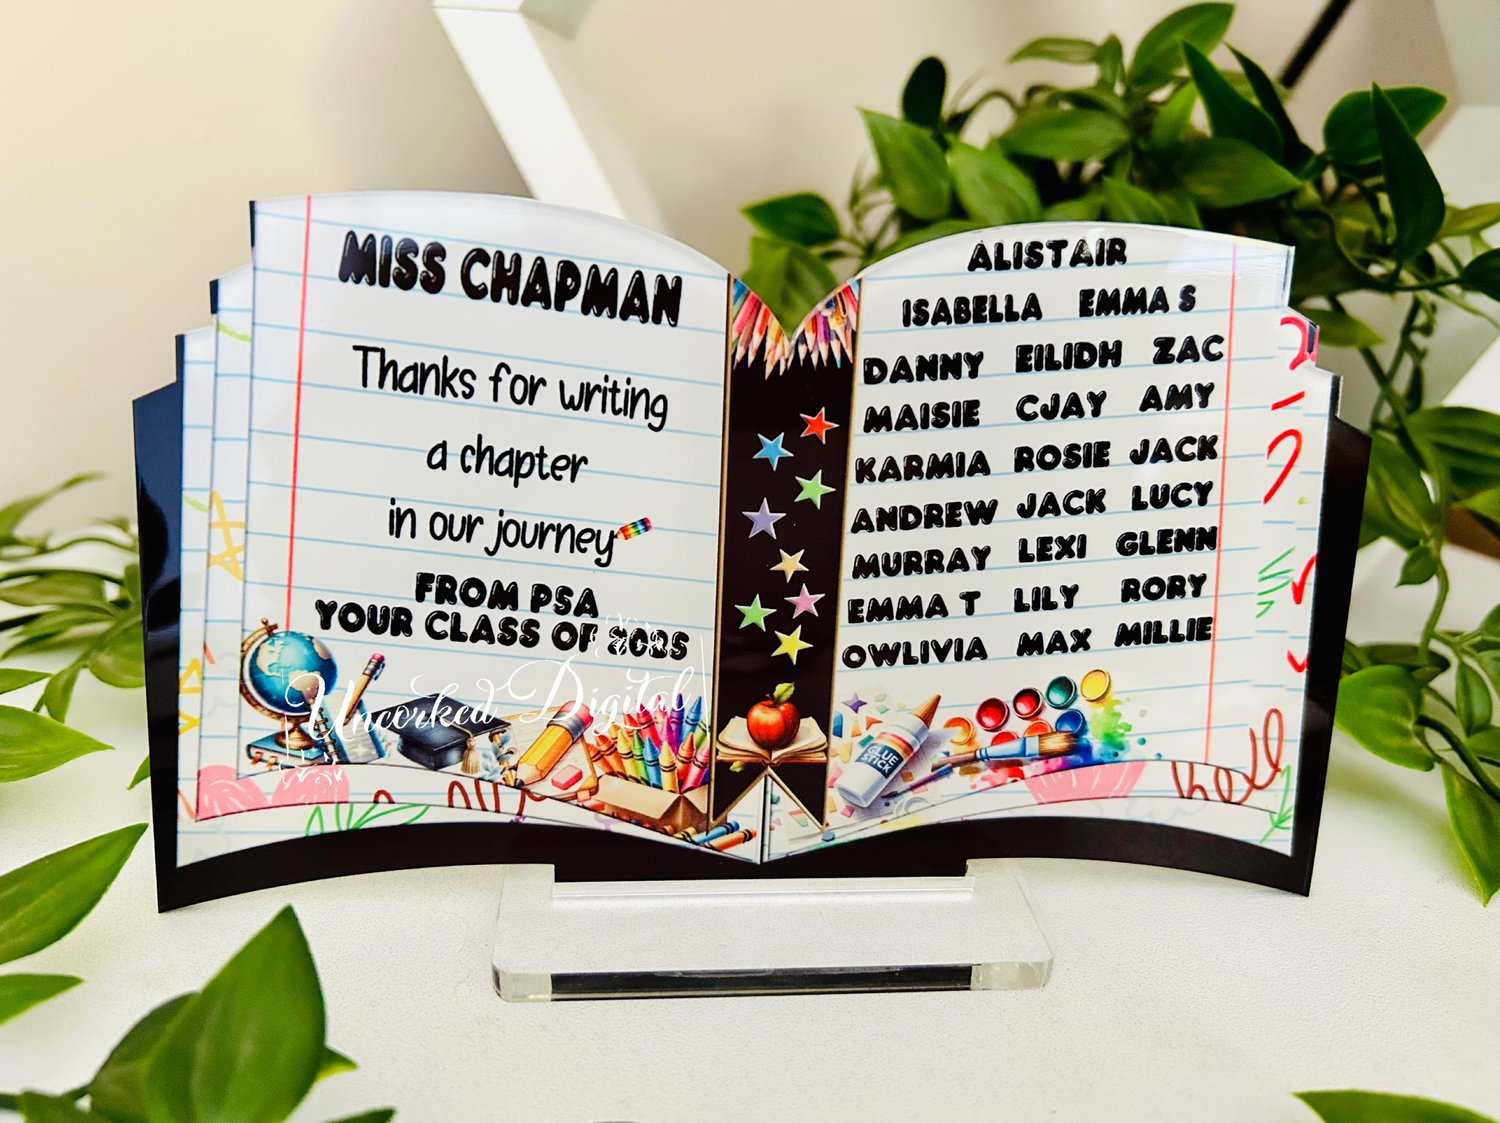 MISS CHAPMAN
Thanks for writing
a chapter
in our journey
FROM PSA
YOUR CLASS OF 2025
Uncorked Digital
ALISTAIR
ISABELLA EMMA S
DANNY EILIDH ZAC
MAISIE CJAY AMY
KARMIA ROSIE JACK
ANDREW JACK LUCY
MURRAY LEXI GLENN
EMMA T LILY RORY
OWLIVIA MAX MILLIE
GLUE
STICK